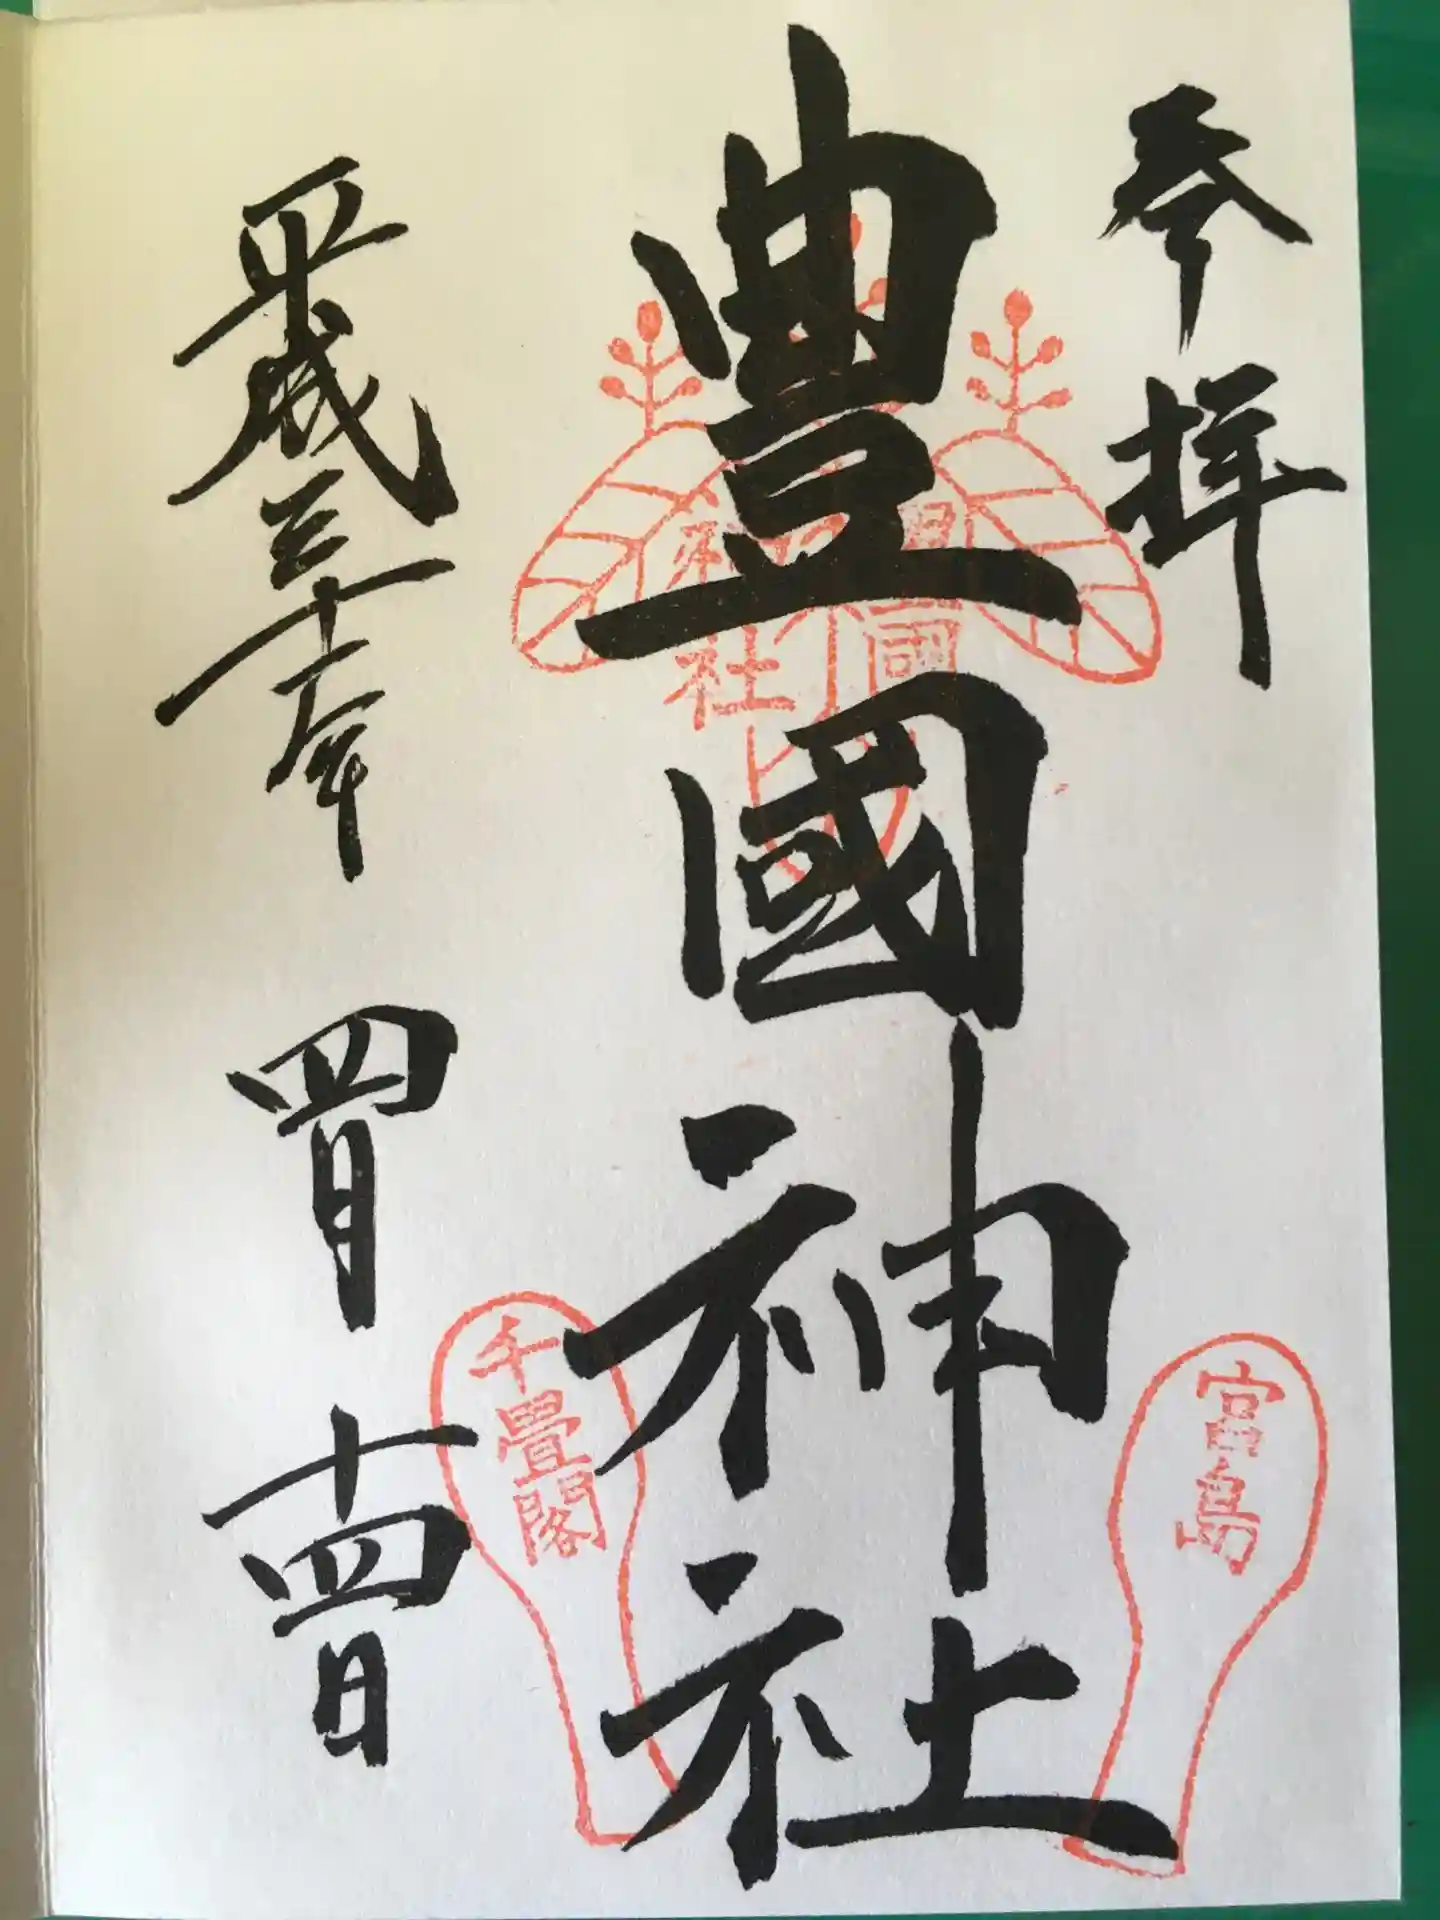 参拝
豊國神社
平成三十年 四月 十四日
豊國
神社
宮島
千畳閣